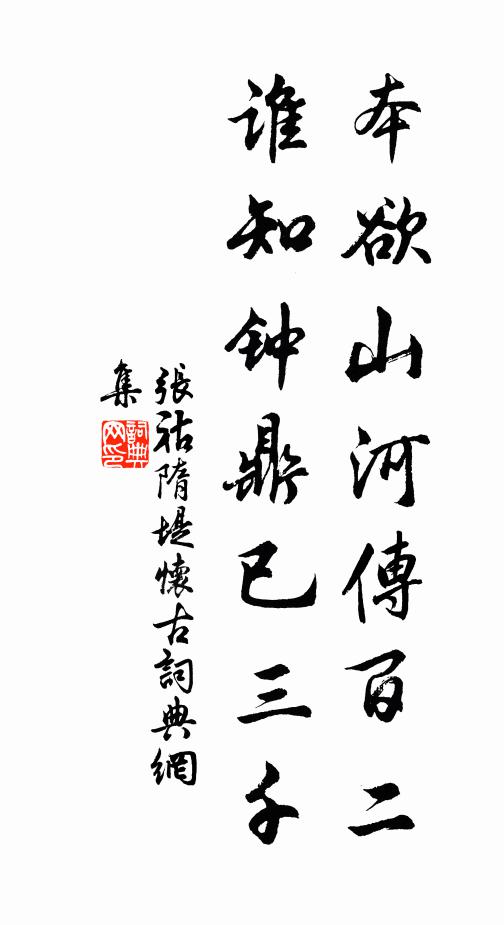 本欲山河傳百二
誰知钟鼎已三千
張祜隋堤懷古詞典網
集
詞典
网印